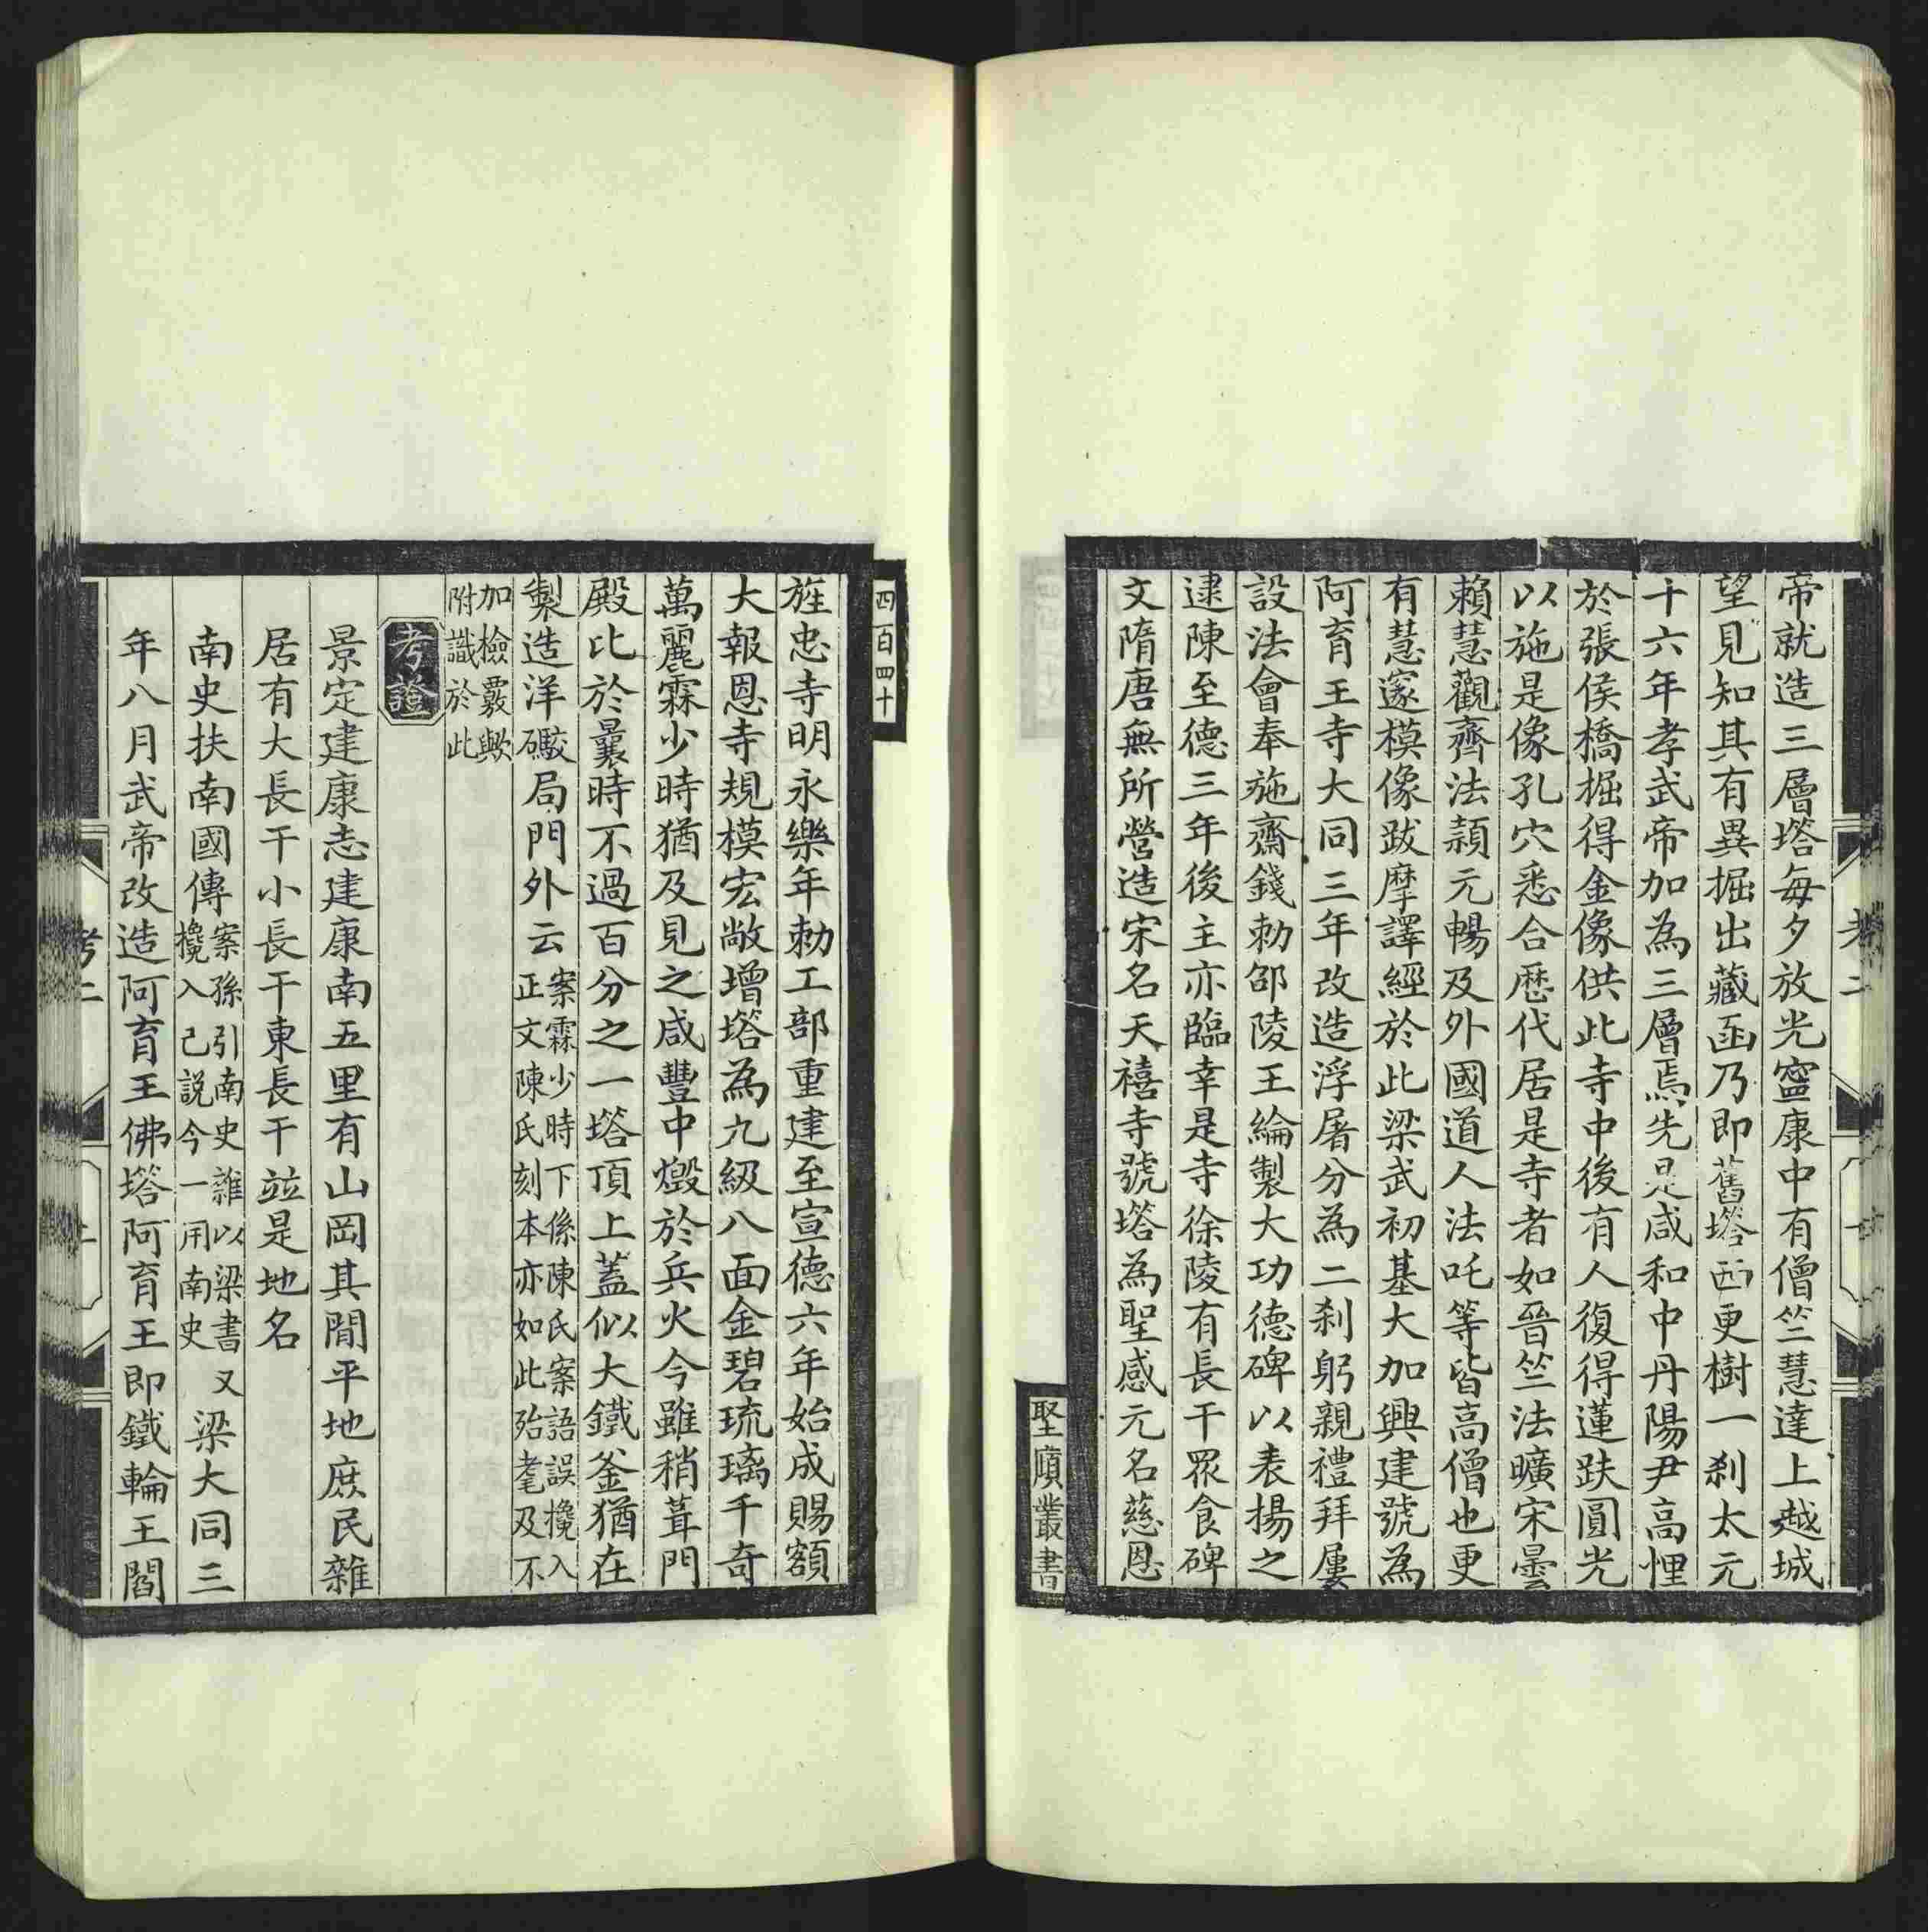 帝就造三層塔每夕放光寧康中有僧竺慧達上越城
望見知其有異掘出藏函乃即舊塔西更樹一刹太元
十六年孝武帝加為三層焉先是咸和中丹陽尹高悝
於張侯橋掘得金像供此寺中後有人復得蓮趺圓光
以施是像孔穴悉合歷代居是寺者如晉竺法曠宋曇
賴慧觀齊法頴元暢及外國道人法吒等皆高僧也更
有慧邃模像跋摩譯經於此梁武初基大加興建號為
阿育王寺大同三年改造浮屠分為二刹躬親禮拜屢
設法會奉施齋錢勅邵陵王綸製大功德碑以表揚之
逮陳至德三年後主亦臨幸是寺徐陵有長干眾食碑
文隋唐無所營造宋名天禧寺號塔為聖感元名慈恩
堅頋叢書
四百四十
旌忠寺明永樂年勅工部重建至宣德六年始成賜額
大報恩寺規模宏敞增塔為九級八面金碧琉璃千奇
萬麗霖少時猶及見之咸豐中燬於兵火今雖稍葺門
殿比於曩時不過百分之一塔頂上蓋似大鐵釜猶在
製造洋礮局門外云案霖少時下係陳氏案語誤攙入
正文陳氏刻本亦如此殆耄及不
加檢覈歟
附識於此
考證
景定建康志建康南五里有山岡其間平地庶民雜
居有大長干小長干東長干並是地名
南史扶南國傳案孫引南史雜以梁書又
攙入己説今一用南史梁大同三
年八月武帝改造阿育王佛塔阿育王即鐵輪王閻
考二